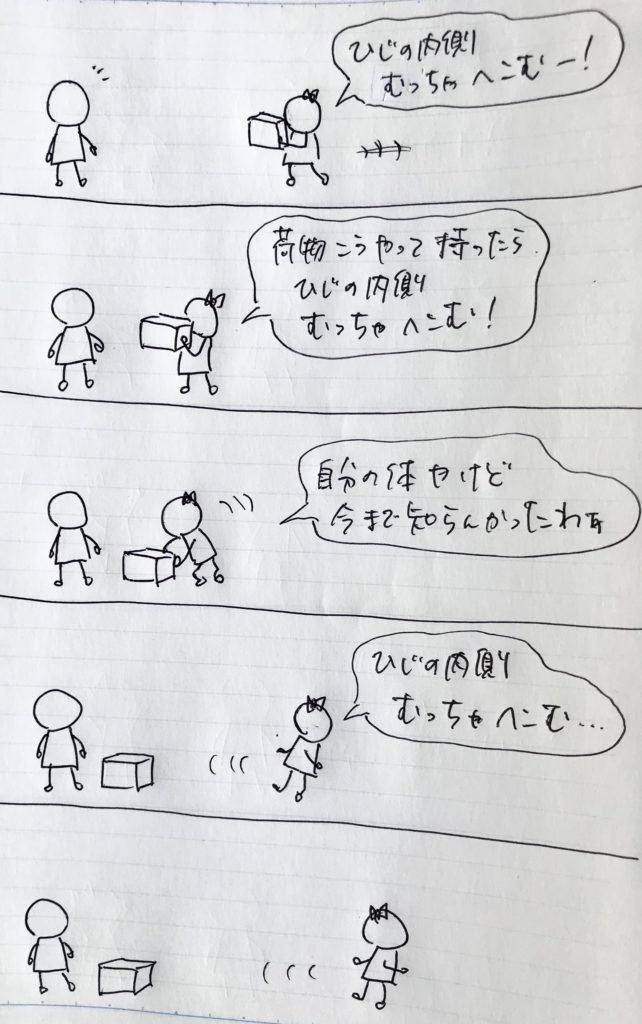 ひじの内側
むっちゃへこむー!
荷物こうやって持ったら
ひじの内側
むっちゃへこむ!
自分の体やけど
今まで知らんかったわぁ
ひじの内側
むっちゃへこむ...